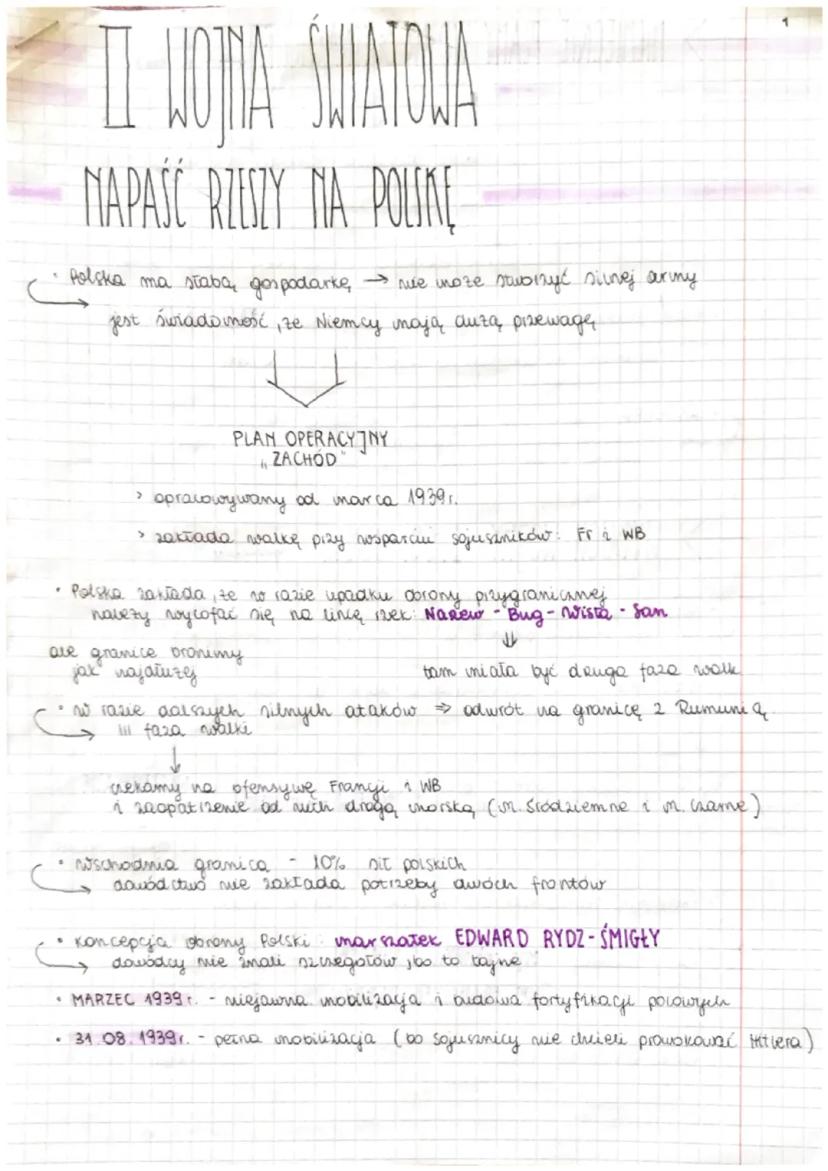 1
II WOJNA ŚWIATOWA
NAPAŚĆ RZESZY NA POLSKĘ
• Polska ma słabą gospodarkę → nie może stworzyć silnej army
jest świadomość, że Niemcy mają dużą przewagę
PLAN OPERACYJNY
„ZACHÓD"
> opracowywany od marca 1939r.
> zakłada walkę przy wsparciu sojuszników: Fr i WB
• Polska zakłada, że w razie upadku obrony przygranicznej
należy wycofać się na linię rzek: Narew - Bug - Wisła - San
⇓
ale granice bronimy
jak najdłużej
tam miała być druga faza walk
• w razie dalszych silnych ataków ⇒ odwrót na granicę z Rumunią
III faza walki
↓
czekamy na ofensywę Francji i WB
i zaopatrzenie od nich drogą morską (m. Śródziemne i m. Czarne)
• wschodnia granica - 10% sił polskich
dowództwo nie zakłada potrzeby dwóch frontów
• koncepcja obrony Polski: marszałek EDWARD RYDZ-ŚMIGŁY
dowódcy nie znali szczegółów, bo to tajne
• MARZEC 1939r. - niejawna mobilizacja i budowa fortyfikacji polowych
• 31.08.1939r. - pełna mobilizacja (bo sojusznicy nie chcieli prowokować Hitlera)